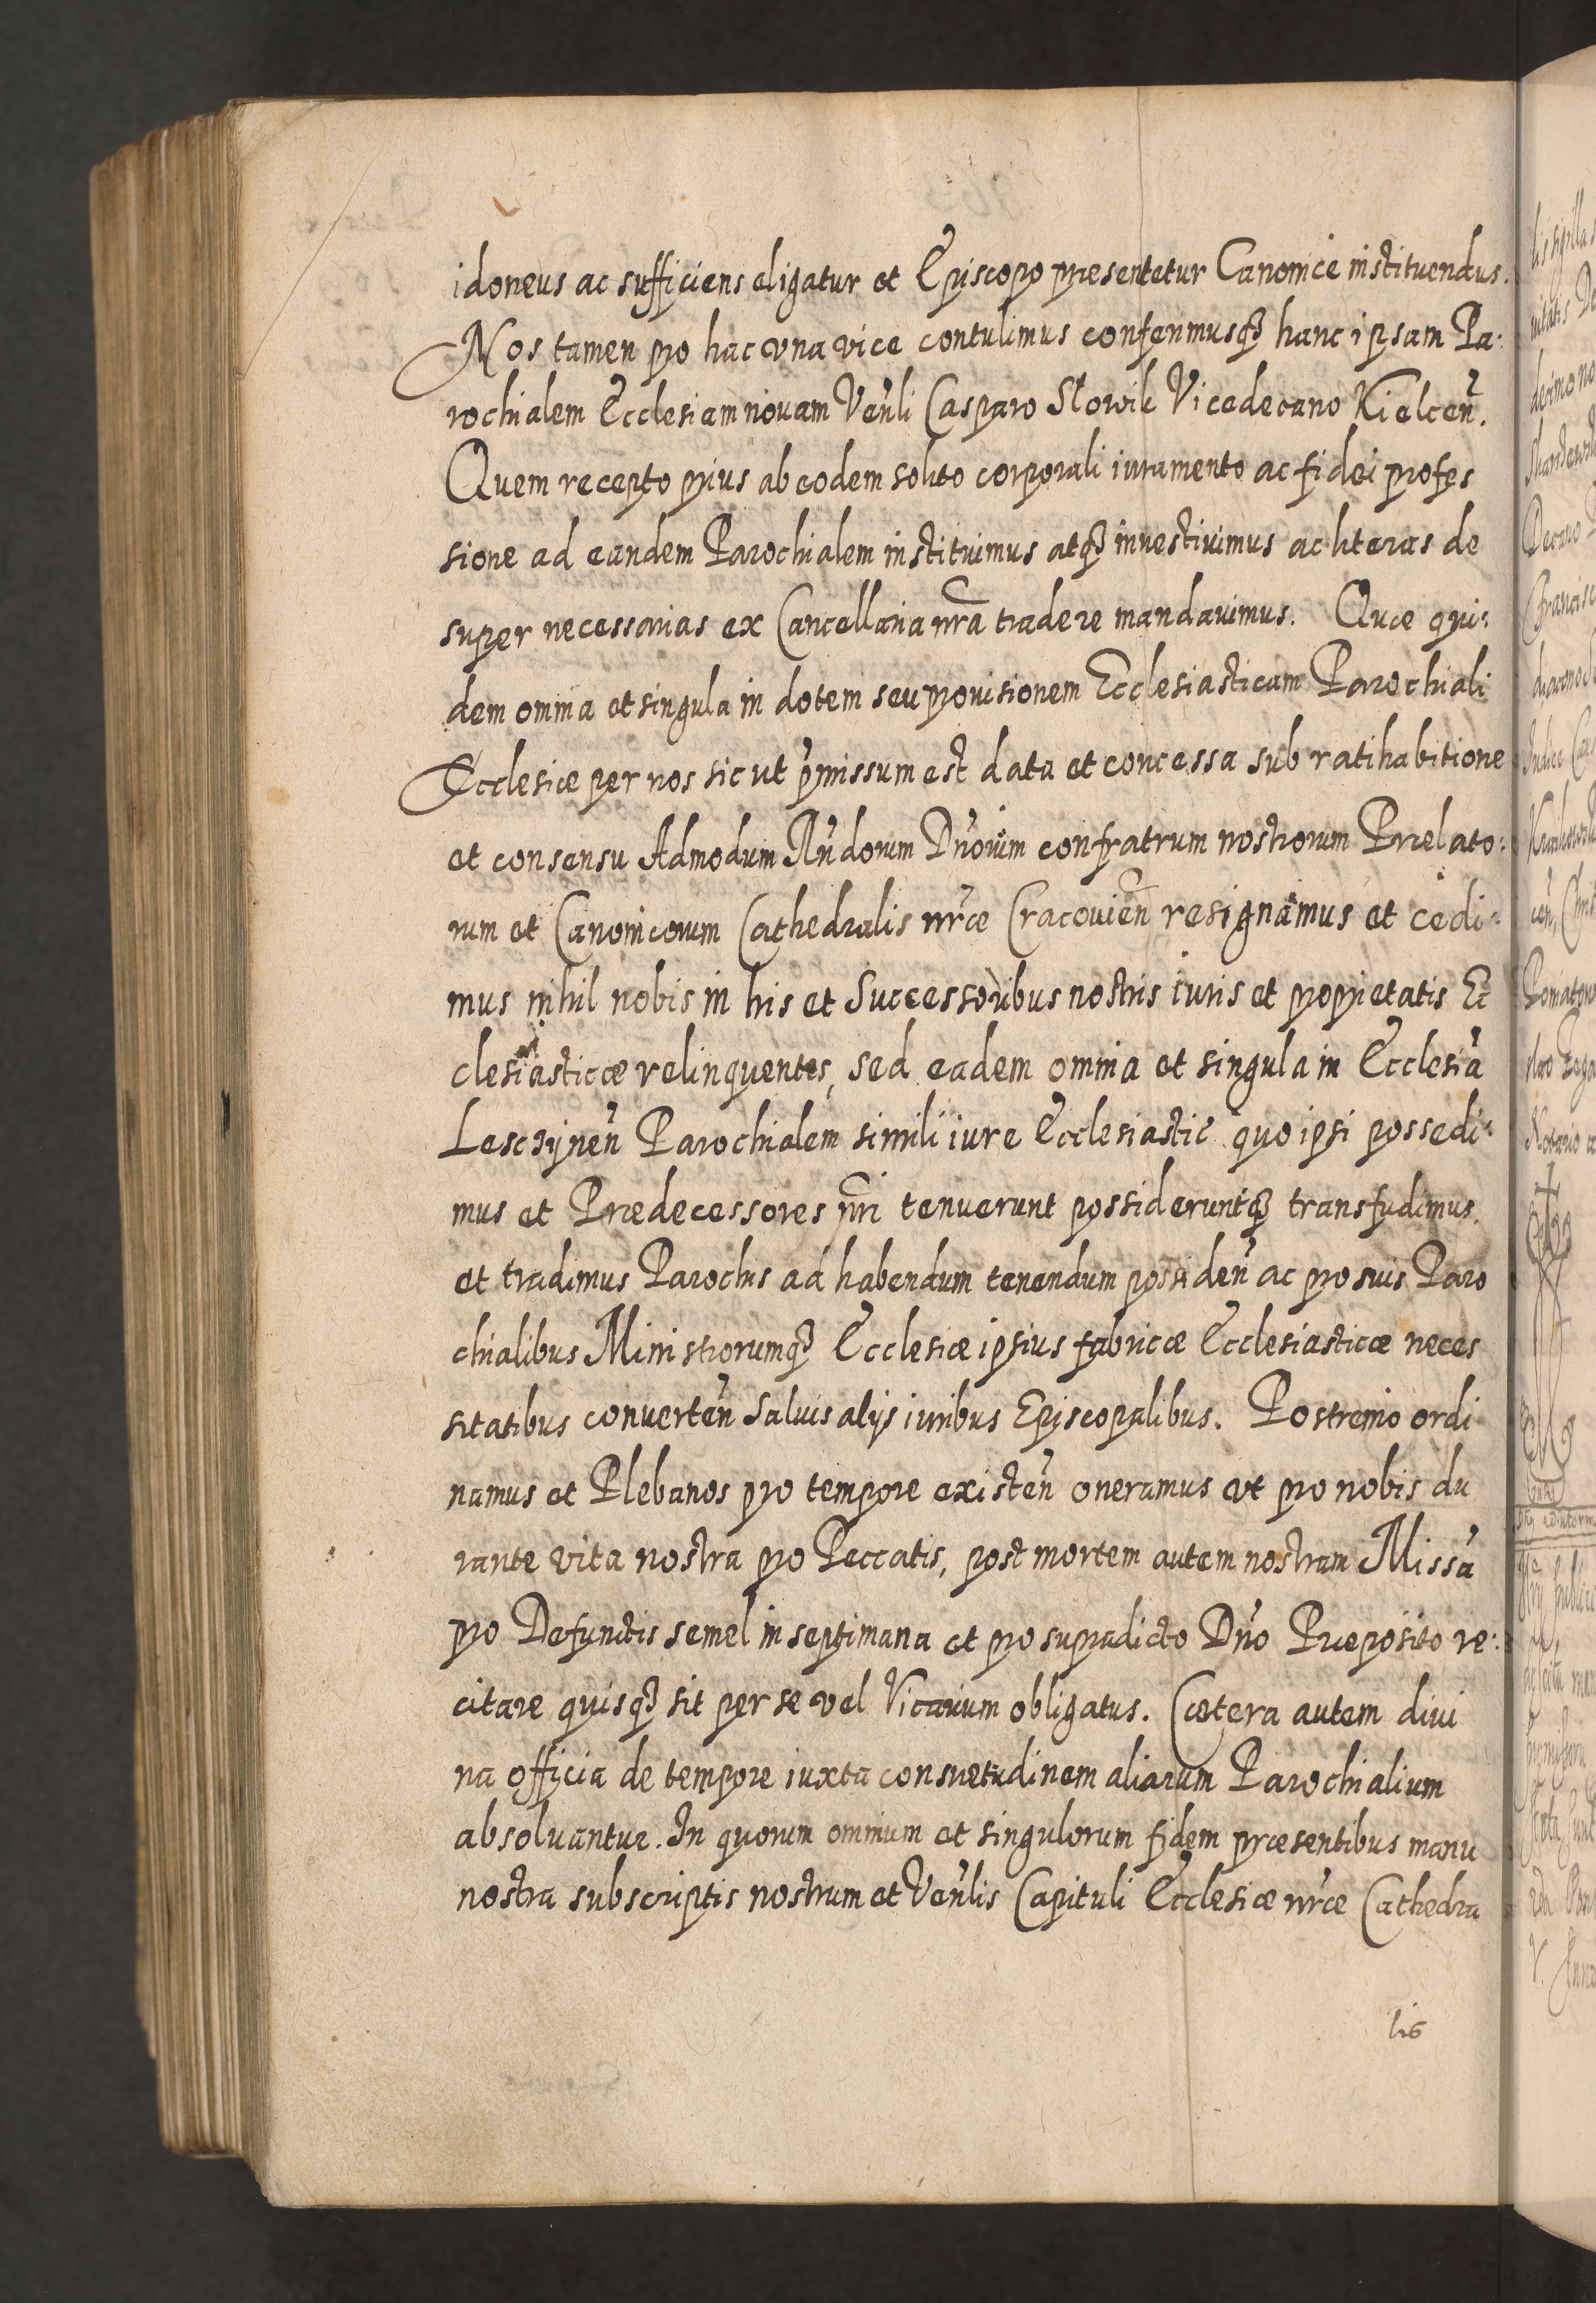 idoneus ac sufficiens eligatur et Episcopo præsentetur Canonicè instituendus.
Nos tamen pro hac vna vice contulimus conferimusqȝ hanc ipsam Pa:
rochialem Ecclesiam nouam Veñli Casparo Slowik Vicedecano Kielceñ.
Quem recepto prius ab eodem solito corporali iuramento ac fidei profes
sione ad eandem Parochialem instituimus atqȝ inuestiuimus ac literas de
super necessarias ex Cancellaria nr̃a tradere mandauimus. Quæ qui:
dem omnia et singula in dotem seu prouisionem Ecclesiasticam Parochiali
Ecclesiæ per nos sicut p̃missum est data et concessa sub ratihabitione
et consensu Admodum Rñdorum Dñorum confratrum nostrorum Prælato:
rum et Canonicorum Cathedralis nr̃æ Cracouień resignamus et cedi:
mus nihil nobis in his et Successoribus nostris iuris et proprietatis Ec
clesiasticæ relinquentes, sed eadem omnia et singula in Ecclesiã
Lesczyneñ Parochialem simili iure Ecclesiastic quo ipsi possedi:
mus et Prædecessores nr̃i tenuerunt possideruntqȝ transfudimus,
et tradimus Parochis ad habendum tenendum possideñ ac pro suis Paro
chialibus Ministrorumqȝ Ecclesiæ ipsius fabricæ Ecclesiasticæ neces
sitatibus conuerteñ saluis alijs iuribus Episcopalibus. Postremò ordi
namus et Plebanos pro tempore existeñ oneramus vt pro nobis du
rante vita nostra pro Peccatis, post mortem autem nostram Missã
pro Defunctis semel in septimana et pro supradicto Dño Præposito re:
citare quisqȝ sit per se vel Vicarium obligatus. Cætera autem diui
na officia de tempore iuxta consuetudinem aliarum Parochialium
absoluantur. In quorum omnium et singulorum fidem præsentibus manu
nostra subscriptis nostrum et Veñlis Capituli Ecclesiæ nr̃æ Cathedra
lis